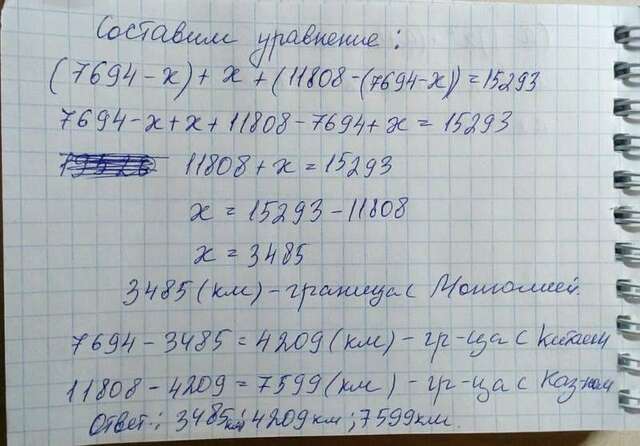 Составим уравнение:
(7694-x)+x+(11808-(7694-x))=15293
7694-x+x+11808-7694+x=15293
11808+x=15293
x=15293-11808
x=3485
3485(км)-граница с Монголией.
7694-3485=4209(км)-гр-ца с Китаем
11808-4209=7599(км)-гр-ца с Каз-ном
Ответ: 3485км; 4209км; 7599км.